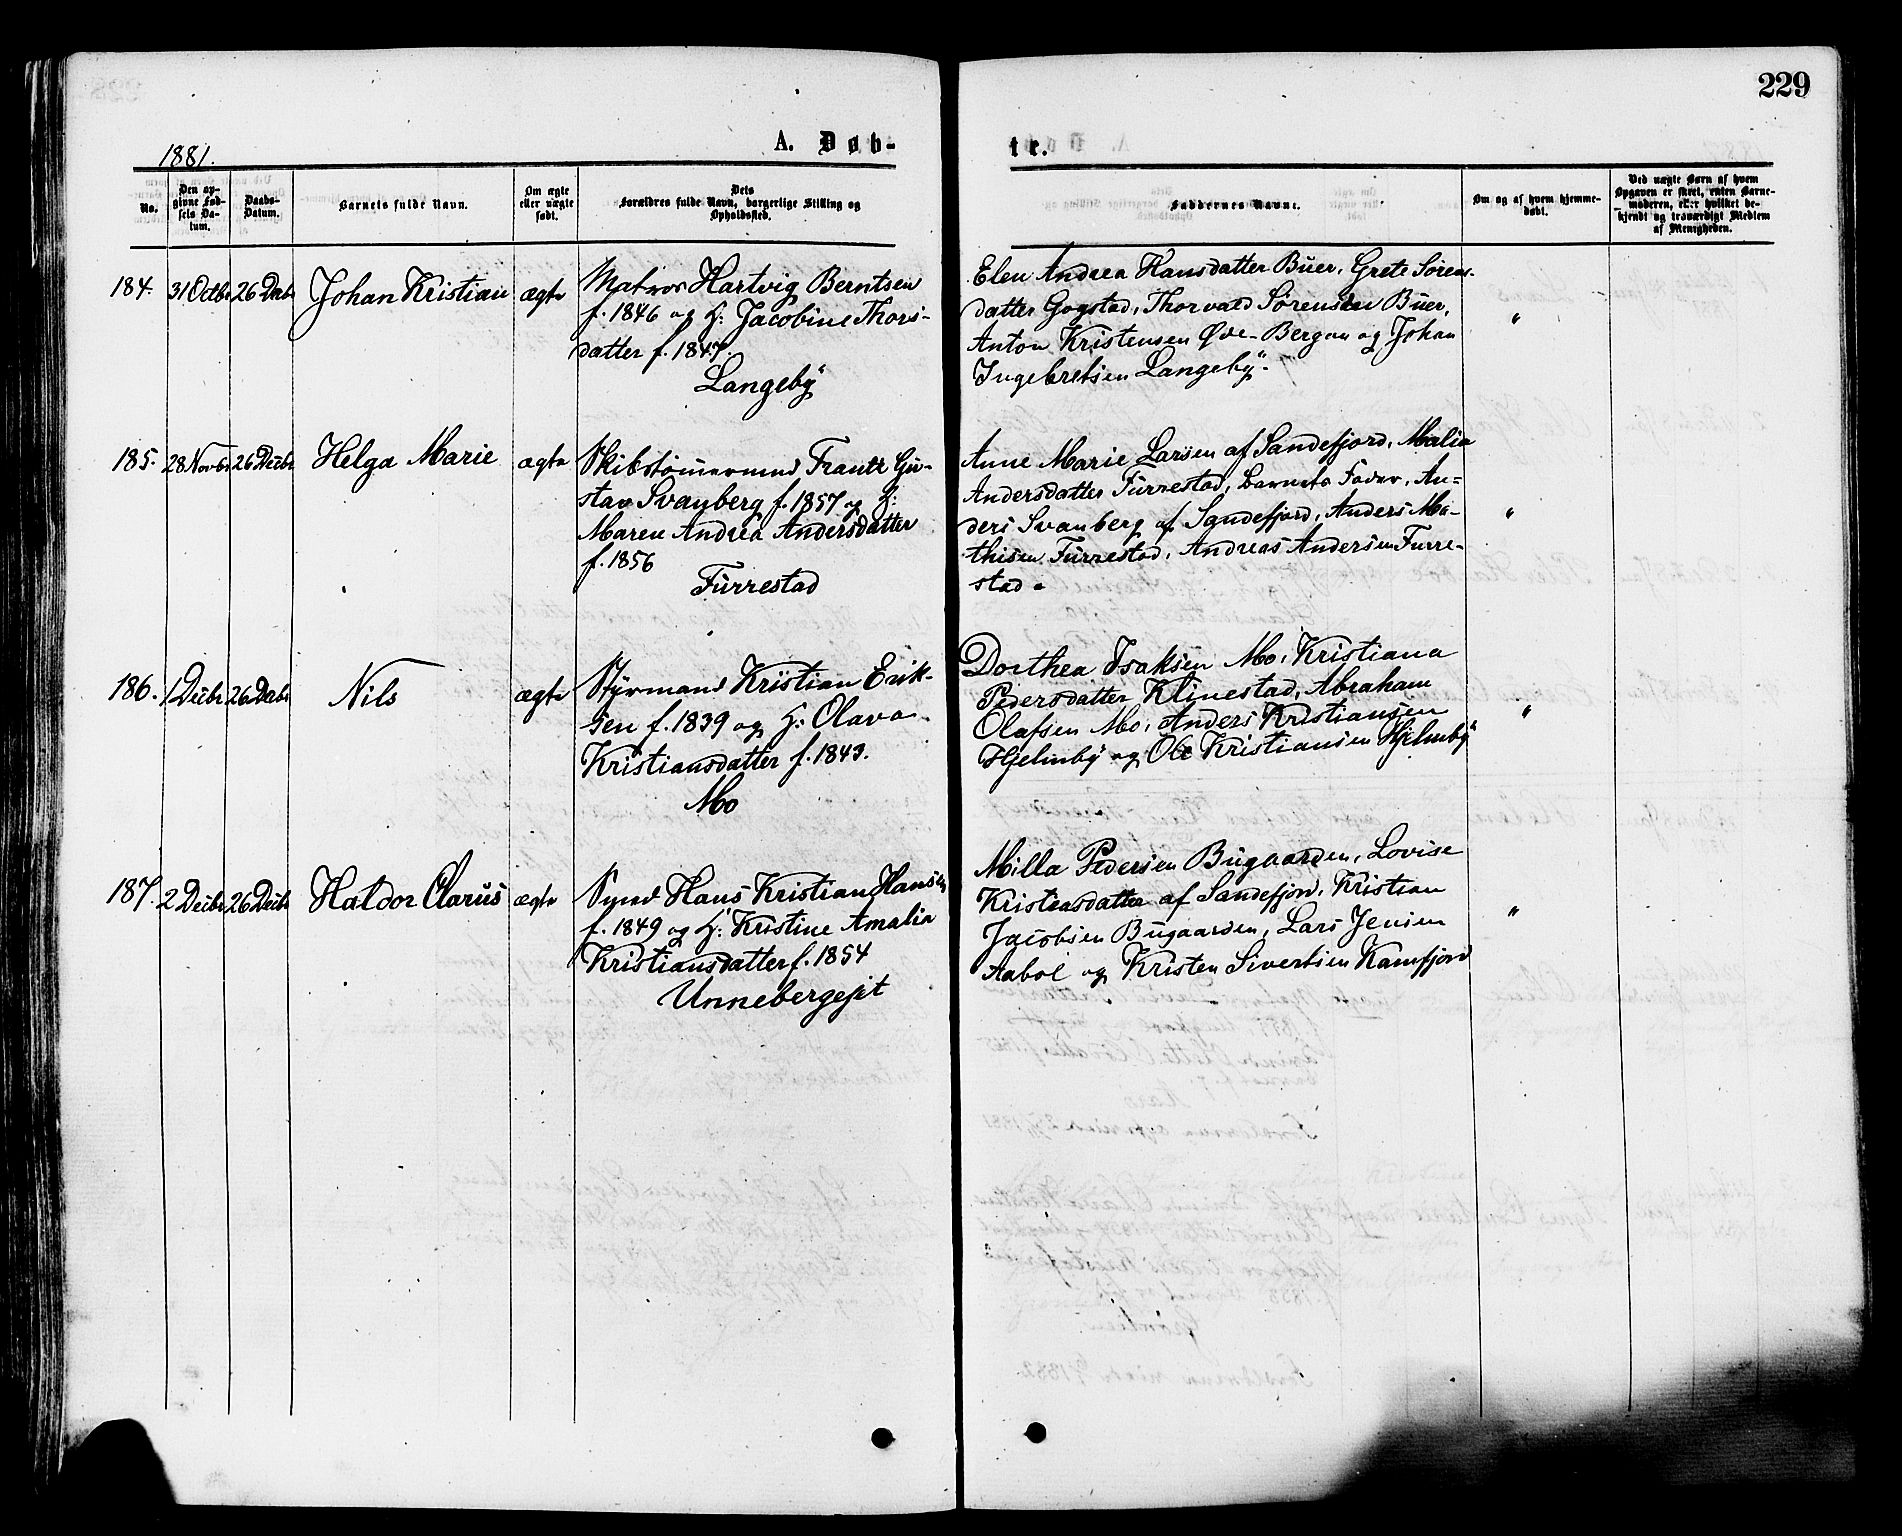 229
1881.
A. Døb-
te.
No.
Den op-
givne Fød-
sels Da-
tum.
Daabs-
Datum.
Barnets fulde Navn.
Om ægte
eller uægte
født.
Dets
Forældres fulde Navn, borgerlige Stilling og
Opholdssted.
Faddernes Navne.
Om og af hvem hjemme-
døbt.
Ved uægte Børn af hvem
Opgaven er skeet, enten Barne-
moderen, eller hvilket be-
kjendt og troværdigt Medlem
af Menigheden.
184. 31 Octbr 26 Decbr Johan Kristian ægte
Matros Hartvig Berntsen
f. 1846 og H: Jacobine Thors-
datter f. 1847.
Langeby
Elen Andrea Hansdatter Buer, Grete Sørens-
datter Gogstad, Thorvald Sørensen Buer,
Anton Kristensen Øvre-Bergan og Johan
Ingebretsen Langeby.
"
185. 28 Novbr 26 Decbr Helga Marie ægte
Skibstømmermand Frantz Gu-
stav Svanberg f. 1857 og H:
Maren Andrea Andersdatter
f. 1856
Furrestad
Anne Marie Larsen af Sandefjord, Malia
Andersdatter Furrestad, Barnets Fader, An-
ders Svanberg af Sandefjord, Anders Ma-
thisen Furrestad, Andreas Andersen Furre-
stad.
"
186. 1 Decbr 26 Decbr Nils ægte
Styrmand Kristian Erik-
sen f. 1839 og H: Olava
Kristiansdatter f. 1843.
Mo
Dorthea Isaksen Mo, Kristiana
Pedersdatter Klinestad, Abraham
Olafsen Mo, Anders Kristiansen
Hjelmby og Ole Kristiansen Hjelmby
"
187. 2 Decbr 26 Decbr Haldor Clarus ægte
Smed Hans Kristian Hansen
f. 1849 og H: Kristine Amalia
Kristiansdatter f. 1854
Unnebergejet
Milla Pedersen Bugaarden, Lovise
Kristensdatter af Sandefjord, Kristian
Jacobsen Bugaarden, Lars Jensen
Aabol og Kristen Sivertsen Kamfjord
"